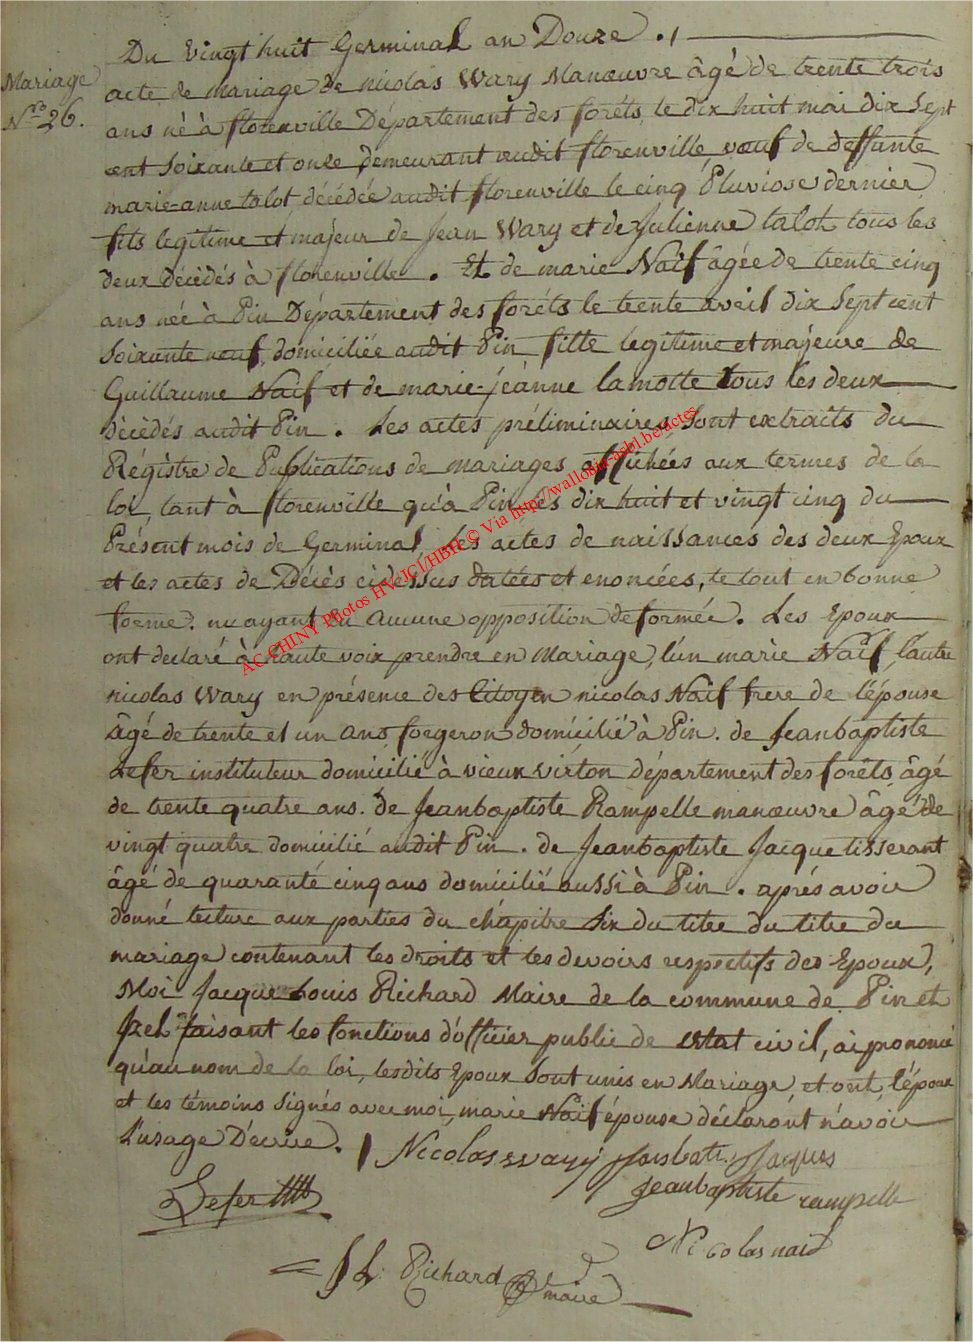 Du vingt huit Germinal an Douze .,
Mariage
N.ro 26.
acte de mariage de nicolas Wary Manœuvre âgé de trente trois
ans né à florenville Département des foréts le dix huit mai dix Sept
cent Soixante et onze, demeurant audit florenville veuf de deffunte
marie-anne talot décédée audit florenville le cinq Pluviose dernier
fils legitime et majeur de Jean Wary et de Julienne talot tous les
deux décédés à florenville. Et de marie Naif âgée de trente cinq
ans née à Pin Département des foréts le trente avril dix Sept cent
Soixante neuf, domiciliée audit Pin fille legitime et majeure de
Guillaume Naif et de marie-jeanne lamotte tous les deux
décédés audit Pin. Les actes préliminaires Sont extraits du
Régistre de Publications de mariages affichées aux termes de la
loi, tant à florenville qu'à Pin les dix huit et vingt cinq du
Présent mois de Germinal, les actes de naissances des deux Epoux
et les actes de Décès cidessus datées et enoncées, le tout en bonne
forme. n'y ayant eu Aucune opposition de formée. Les Epoux
ont declaré à haute voix prendre en Mariage, l'un marie Naif, l'autre
nicolas Wary en présence des Citoyen nicolas Naif frere de l'épouse
âgé de trente et un ans forgeron domicilié à Pin. de Jeanbaptiste
Lefer instituteur domicilié à vieux virton département des foréts âgé
de trente quatre ans. de Jeanbaptiste Rampelle manœuvre âgé de
vingt quatre domicilié audit Pin. de Jeanbaptiste Jacque tisserant
âgé de quarante cinq ans domicilié aussi à Pin. aprés avoir
donné lecture aux parties du chapitre Six du titre du titre du
mariage contenant les droits et les devoirs respectifs des Epoux,
Moi Jacque Louis Richard Maire de la commune de Pin et
Izel faisant les fonctions d'officier public de estat civil, ai prononcé
qu'au nom de la loi, lesdits Epoux Sont unis en Mariage, et ont, l'époux
et les témoins Signés avec moi, marie Naif épouse déclaront n'avoir
l'usage D'écrire.
Nicolas wary Janbati Jacques
Lefer
Jeanbaptiste rampelle
Nicolas naif
J L Richard
maire
AC CHINY Photos HV-JCl/HBH © Via http://wallonia-asbl.be/actes